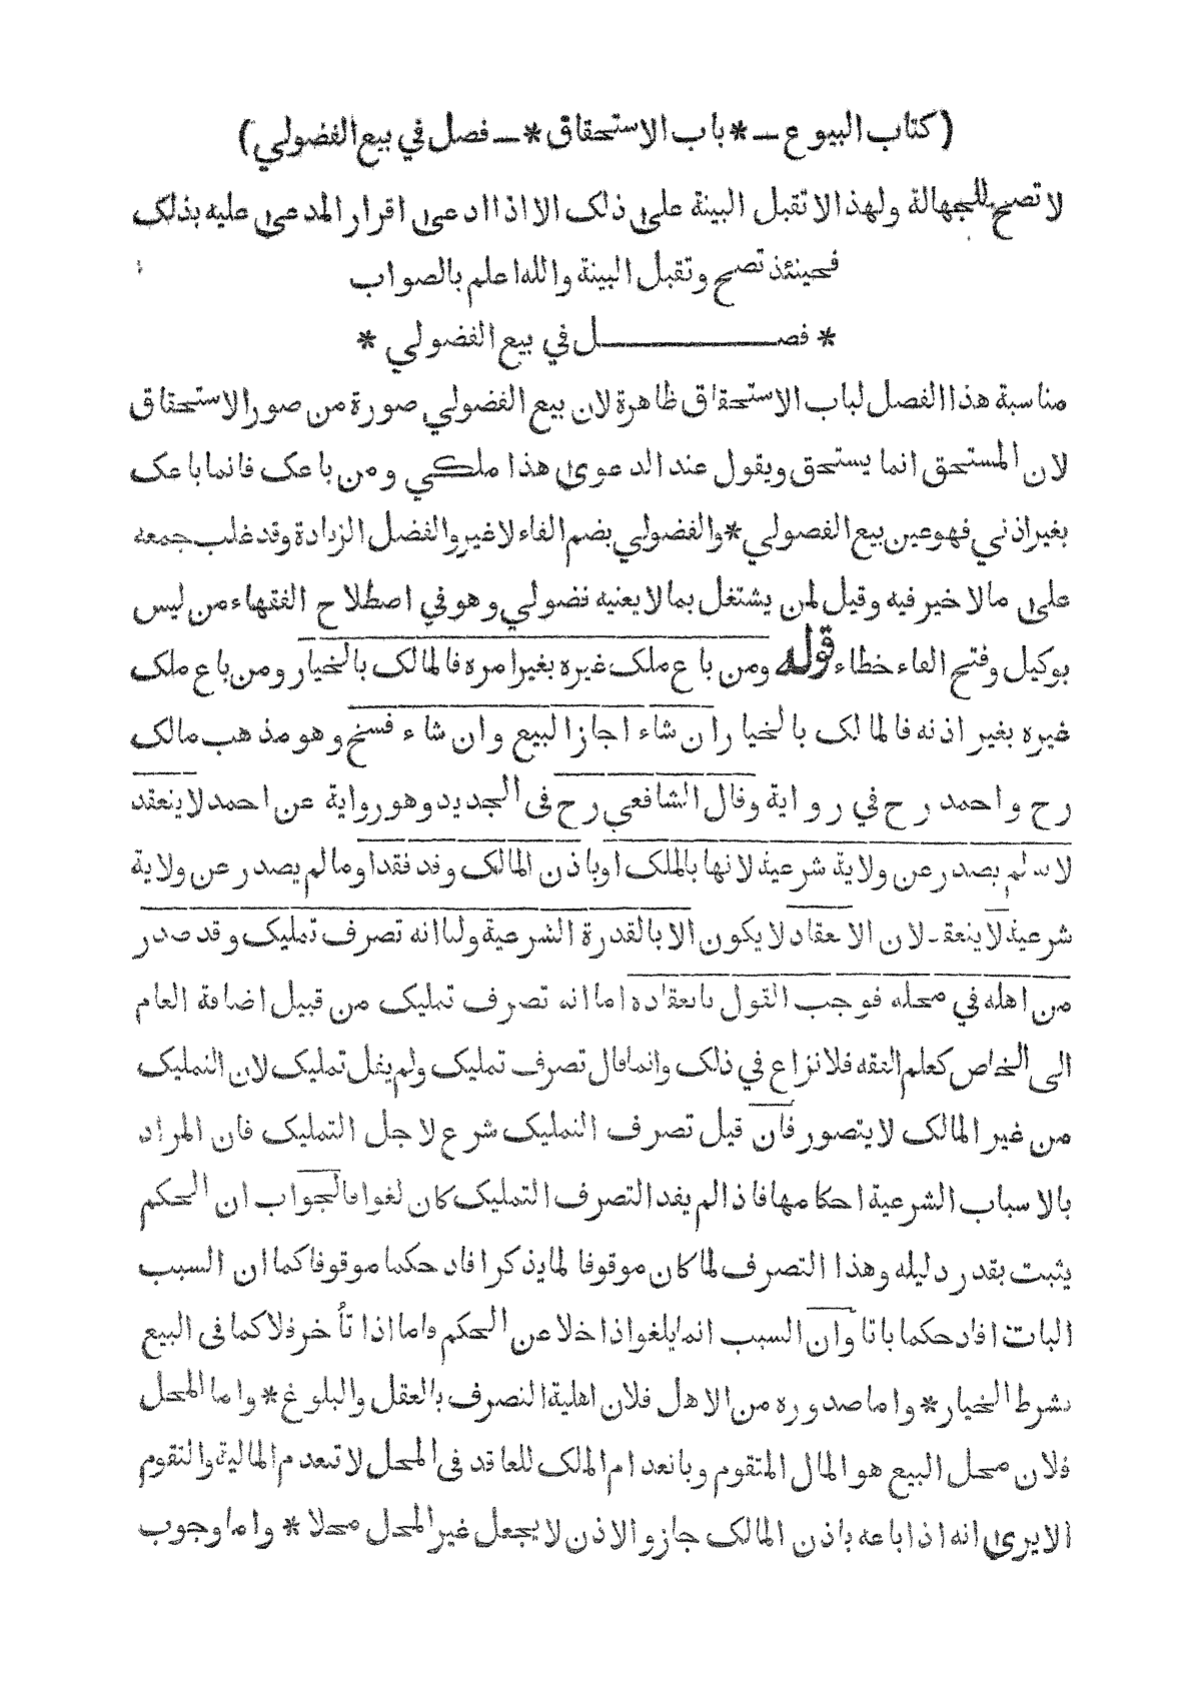 (كتاب البيوع — * باب الاستحقاق * — فصل في بيع الفضولي)
لا تصح للجهالة ولهذا لا تقبل البينة على ذلك الا اذا ادعى اقرار المدعى عليه بذلك
فحينئذ تصح وتقبل البينة والله اعلم بالصواب
* فصــــــل في بيع الفضولي *
مناسبة هذا الفصل لباب الاستحقاق ظاهرة لان بيع الفضولي صورة من صور الاستحقاق
لان المستحق انما يستحق ويقول عند الدعوى هذا ملكي ومن باعك فانما باعك
بغير اذني فهو عين بيع الفصولي * والفضولي بضم الفاء لا غير والفضل الزيادة وقد غلب جمعه
على ما لا خير فيه وقيل لمن يشتغل بما لا يعنيه فضولي وهو في اصطلاح الفقهاء من ليس
بوكيل وفتح الفاء خطاء قوله ومن باع ملك غيره بغير امره فالمالك بالخيار ومن باع ملك
غيره بغير اذنه فالمالك بالخيار ان شاء اجاز البيع وان شاء فسخ وهو مذهب مالك
رح واحمد رح في رواية وقال الشافعي رح فى الجديد وهو رواية عن احمد لا ينعقد
لانه لم يصدر عن ولاية شرعية لانها بالملك او باذن المالك وقد فقدا وما لم يصدر عن ولاية
شرعية لا ينعقد لان الانعقاد لا يكون الا بالقدرة الشرعية ولنا انه تصرف تمليك وقد صدر
من اهله في محله فوجب القول بانعقاده اما انه تصرف تمليك من قبيل اضافة العام
الى الخاص كعلم الفقه فلا نزاع في ذلك وانما قال تصرف تمليك ولم يقل تمليك لان التمليك
من غير المالك لا يتصور فان قيل تصرف التمليك شرع لاجل التمليك فان المراد
بالاسباب الشرعية احكامها فاذا لم يفد التصرف التمليك كان لغوا فالجواب ان الحكم
يثبت بقدر دليله وهذا التصرف لما كان موقوفا لما يذكر افاد حكما موقوفا كما ان السبب
البات افاد حكما باتا وان السبب انما يلغو اذا خلا عن الحكم واما اذا تأخر فلا كما فى البيع
بشرط الخيار * واما صدوره من الاهل فلان اهلية التصرف بالعقل والبلوغ * واما المحل
فلان محل البيع هو المال المتقوم وبانعدام المالك للعاقد فى المحل لا تعدم المالية والتقوم
الا يرى انه اذا باعه باذن المالك جاز والاذن لا يجعل غير المحل محلا * واما وجوب